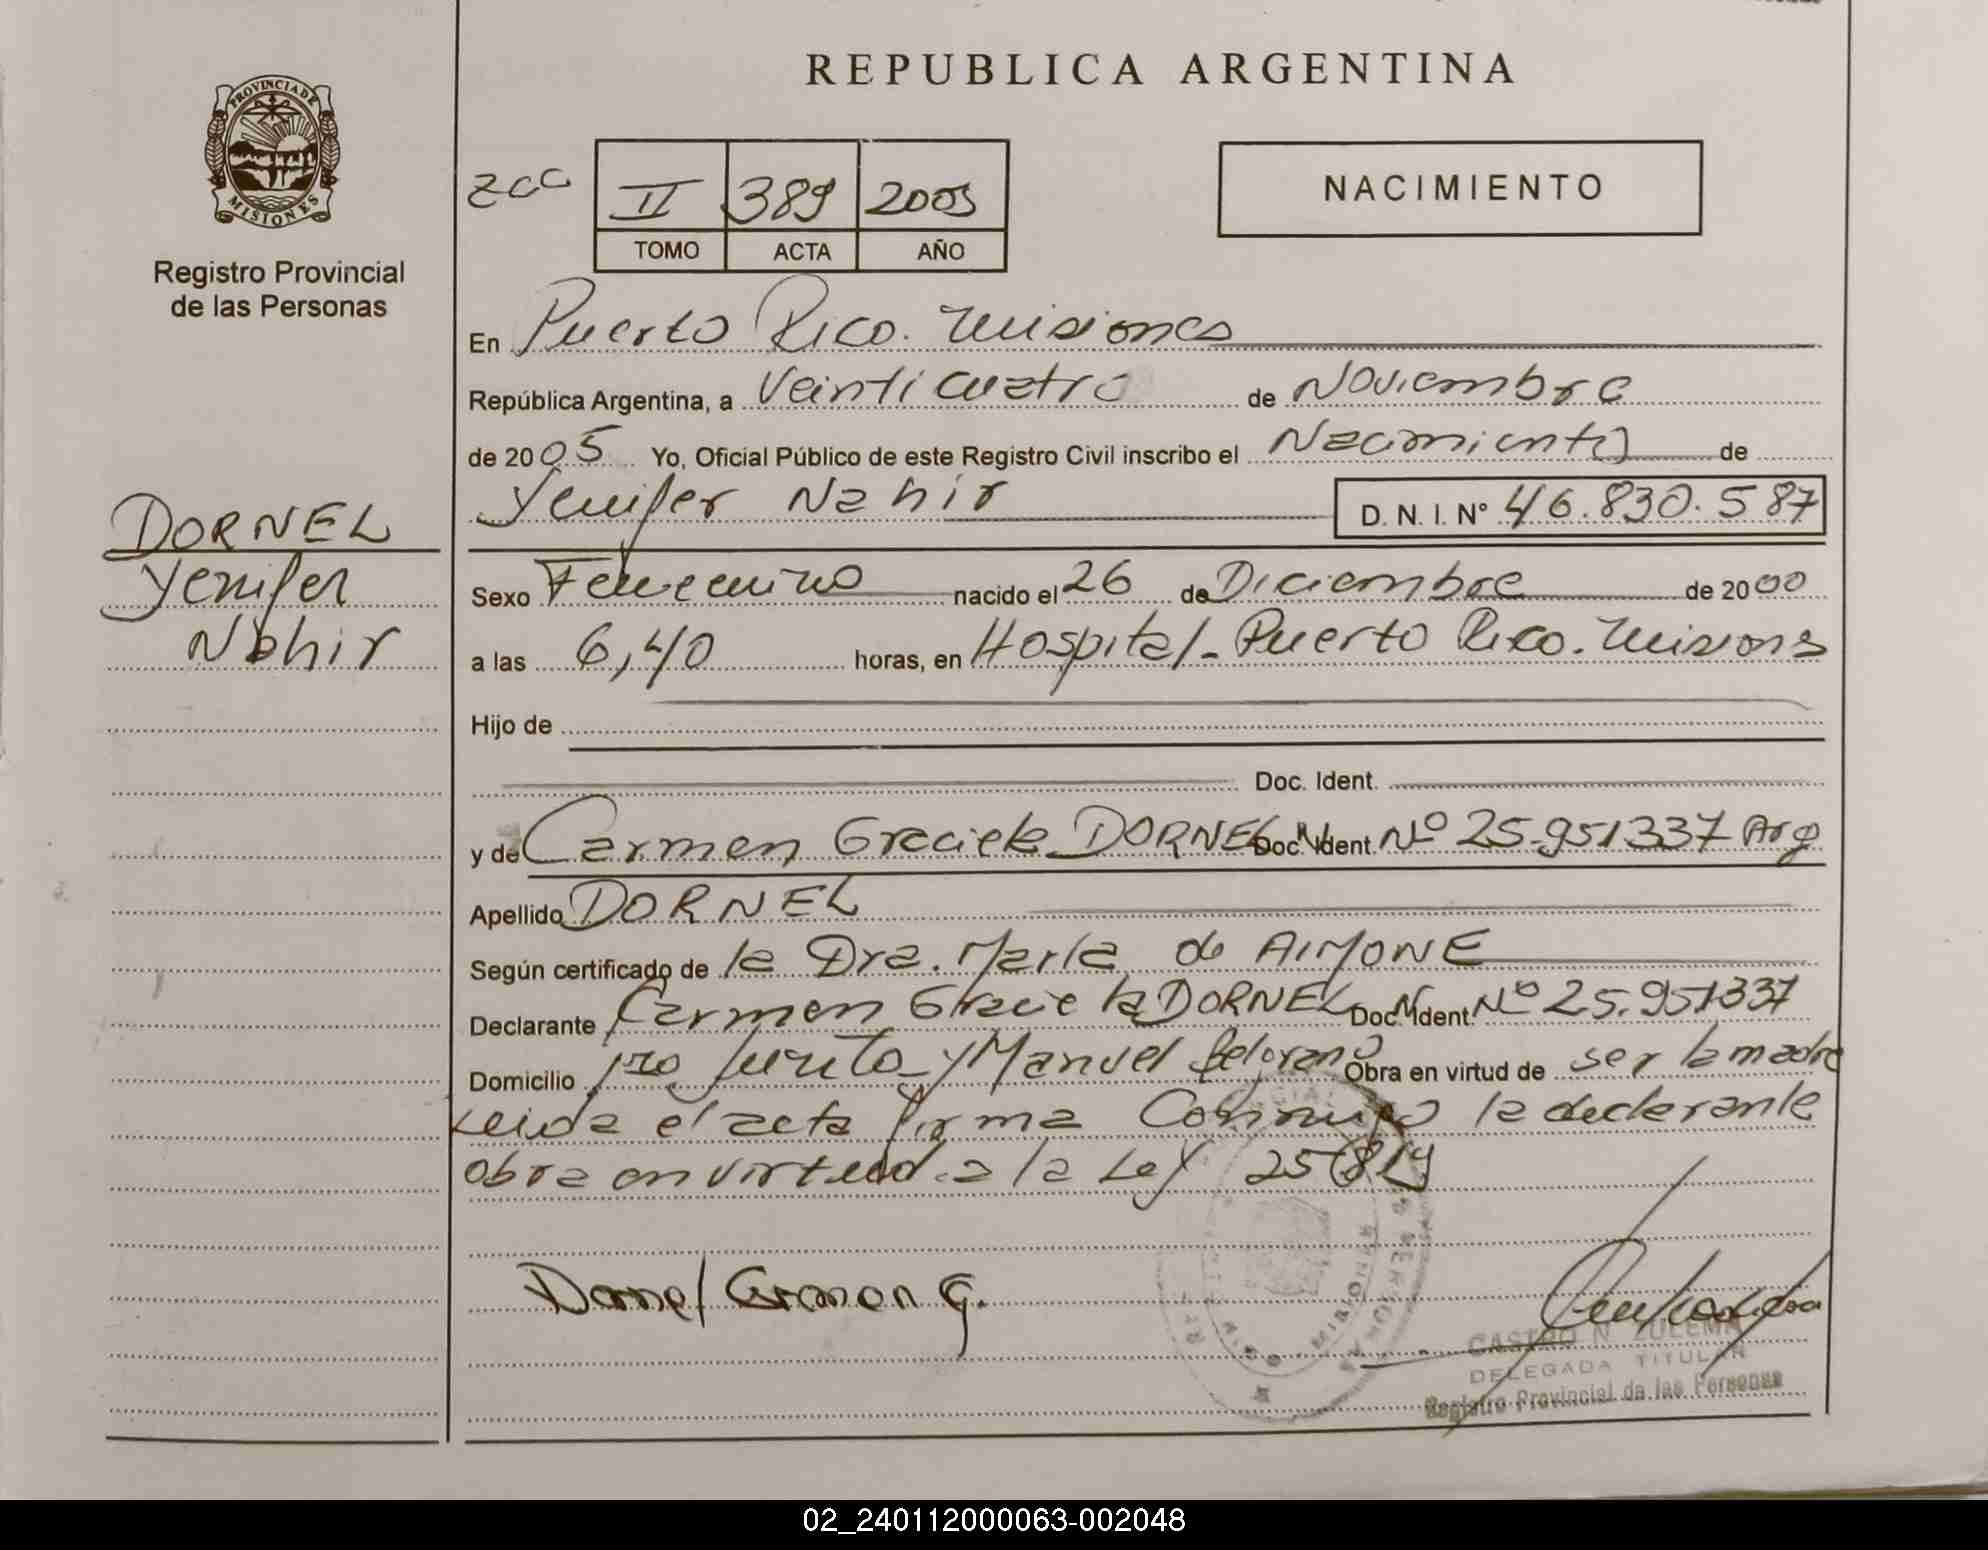 REPUBLICA ARGENTINA
PROVINCIA DE MISIONES
Registro Provincial
de las Personas
II 389 2005
TOMO ACTA AÑO
NACIMIENTO
DORNEL
Yenifer
Nahir
En Puerto Rico. Misiones
República Argentina, a Veinticuatro de Noviembre
de 2005 Yo, Oficial Público de este Registro Civil inscribo el Nacimiento de
Yenifer Nahir D. N. I. N° 46.830.587
Sexo Femenino nacido el 26 de Diciembre de 2000
a las 6,40 horas, en Hospital - Puerto Rico. Misiones
Hijo de
Doc. Ident.
y de Carmen Graciela DORNEL Doc. Ident. Nº 25.951337 Arg
Apellido DORNEL
Según certificado de la Dra. María de AIMONE
Declarante Carmen Graciela DORNEL Doc. Ident. Nº 25.951337
Domicilio 1ro Junta y Manuel Belgrano Obra en virtud de ser la madre
Leida el acta firma Conmigo la declarante
obra en virtud a la Ley 25819
Dornel Carmen G.
CASTRO N. ZULEMA
DELEGADA TITULAR
Registro Provincial de las Personas
02_240112000063-002048